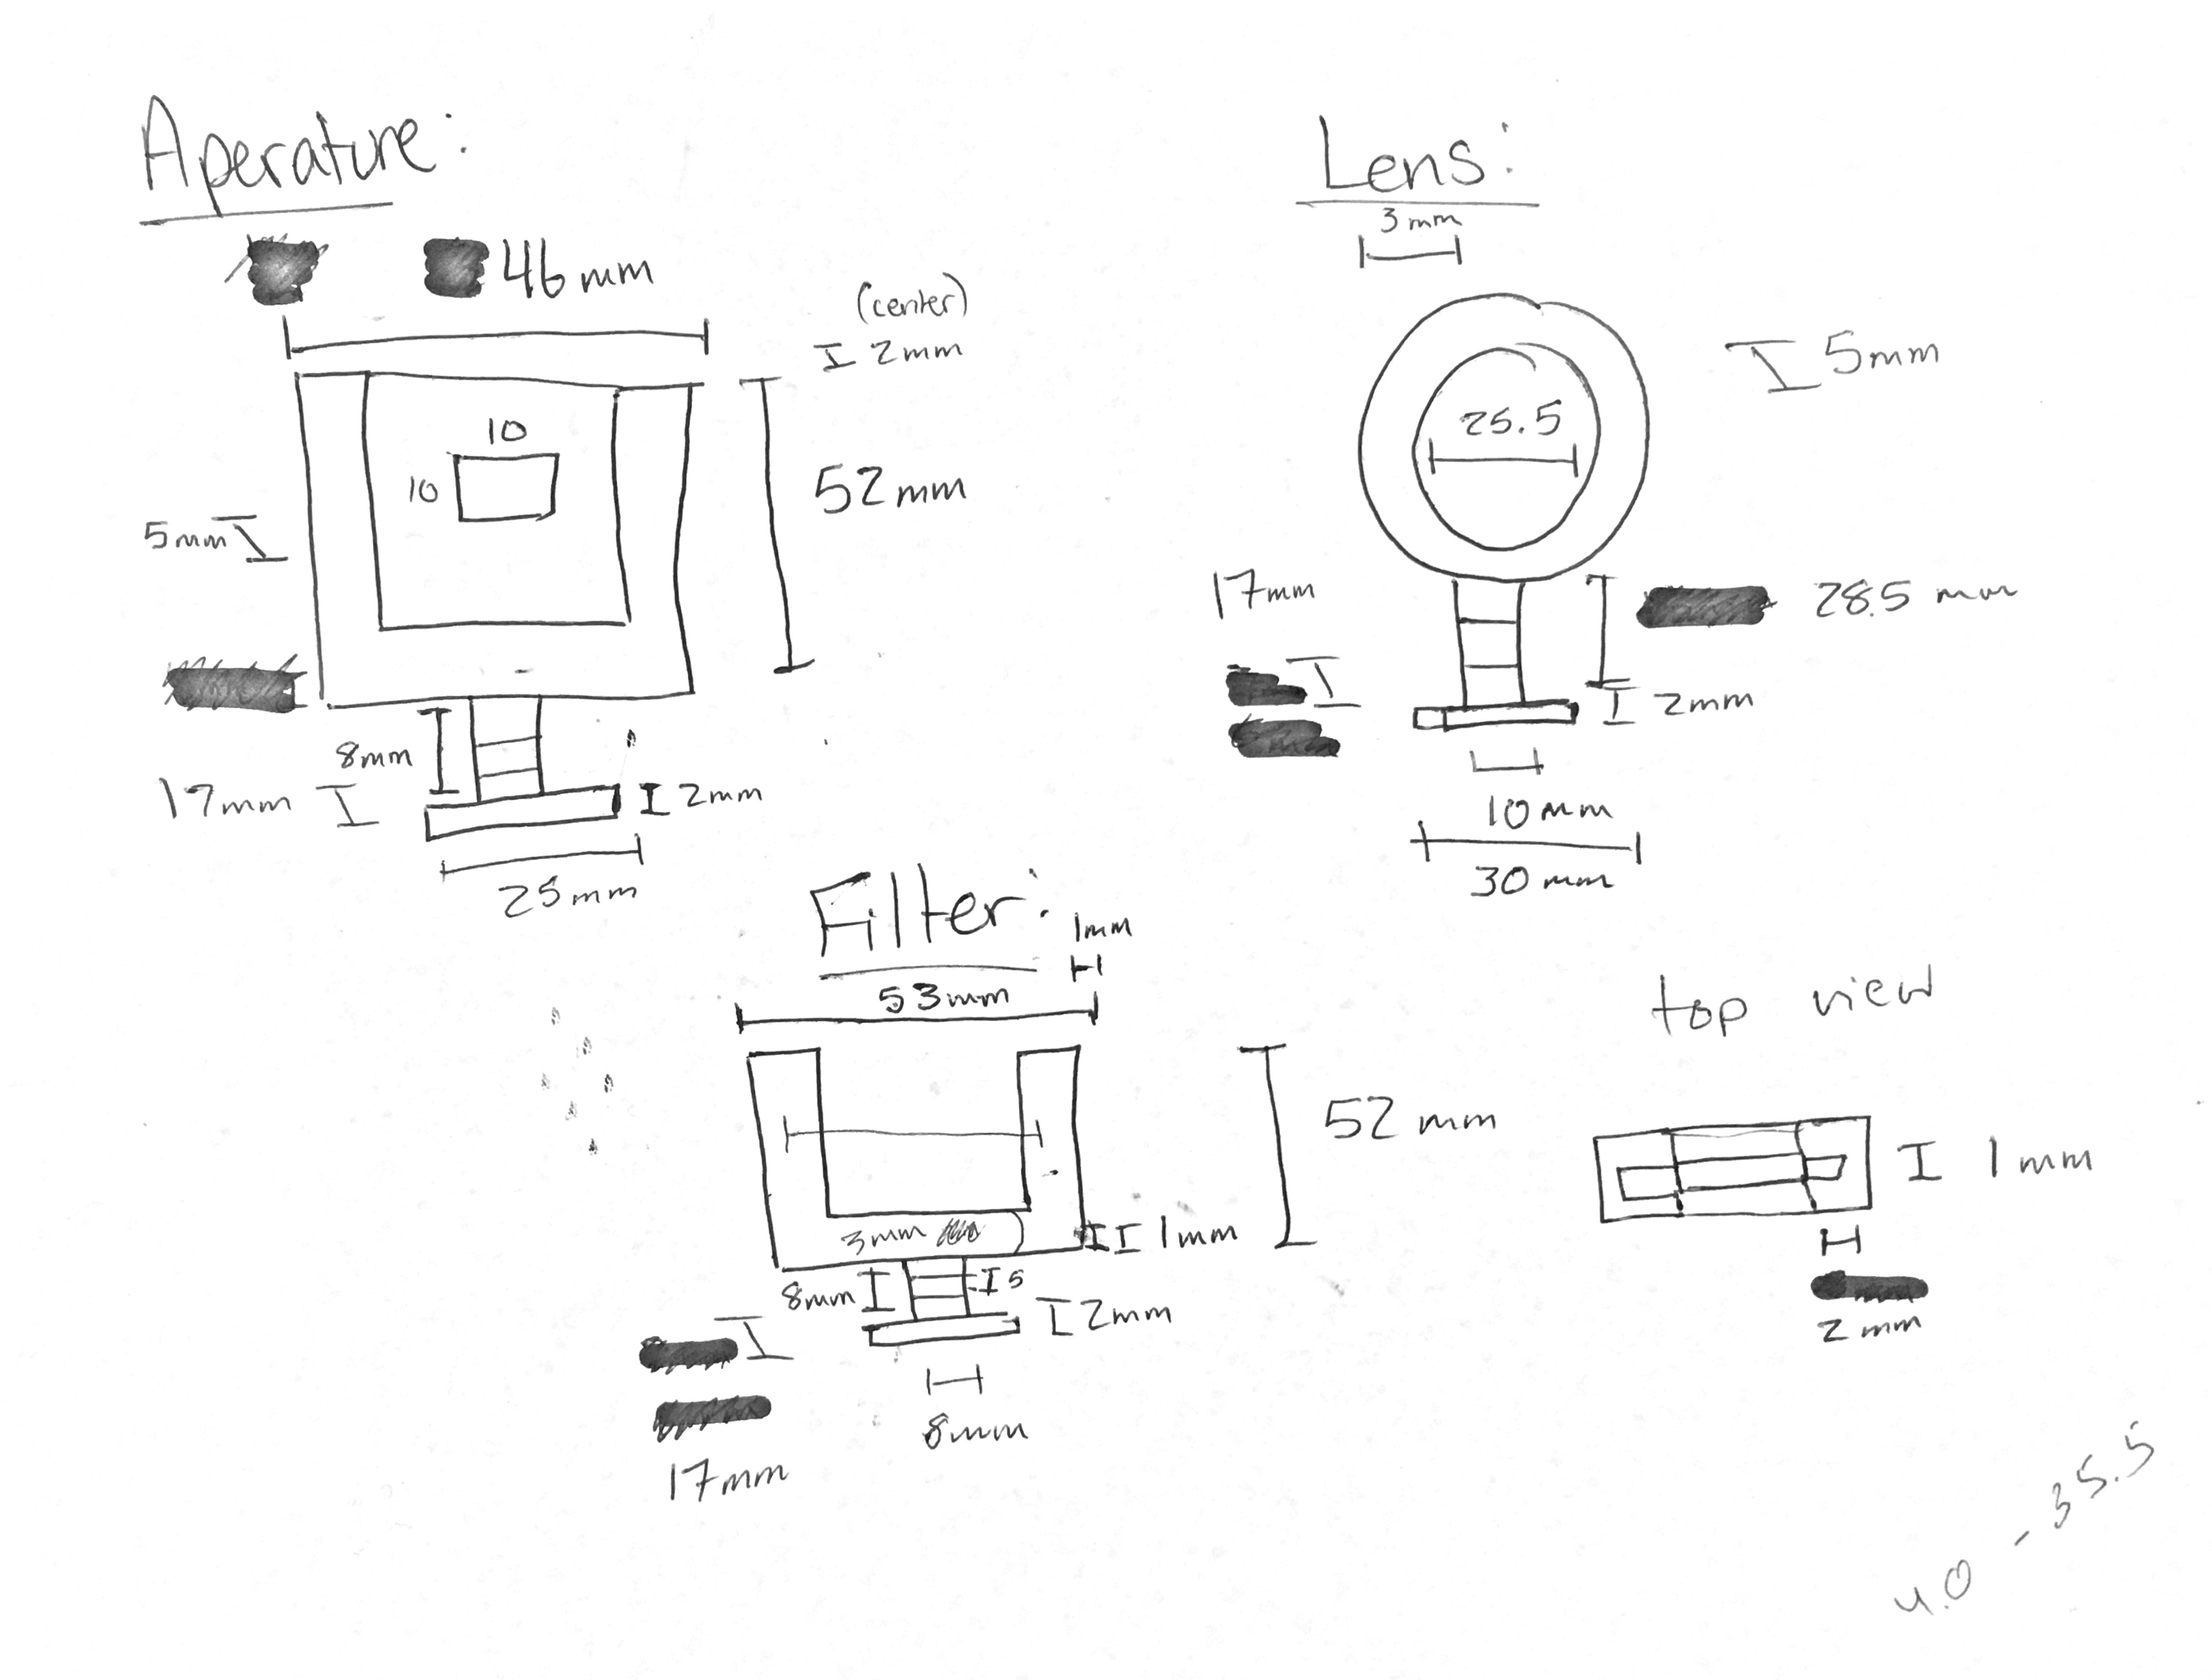 Aperature:
46 mm
(center)
2mm
10
10
5mm
52mm
8mm
17mm
2mm
25mm
Lens:
3mm
5mm
25.5
17mm
28.5 mm
2mm
10mm
30mm
Filter:
1mm
53mm
52 mm
3mm
1mm
8mm
5
2mm
8mm
17mm
top view
1mm
2mm
4.0 - 35.5